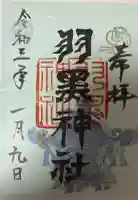 奉拝
羽黒神社
令和三年一月九日